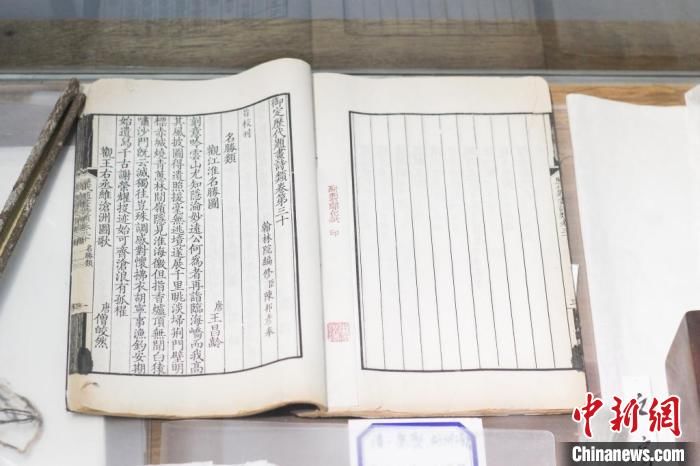 御定歷代題畫詩類卷第三十
翰林院編修臣陳邦彥奉
旨校刊
名勝類
觀江淮名勝圖 唐 王昌齡
刻意吟雲山尤知隱淪妙遠公何為者再詣臨海嶠而我高
其風披圖得遺照援毫無逃境遂展千里眺淡掃荊門壁明
標赤城燒青蔥林間嶺隱見淮海徼但指香爐頂無聞白猿
嘯沙門既云滅獨往豈殊調感對懷拂衣胡寧事漁釣安期
始遺舄千古謝榮耀投迹始可齊滄浪有孤櫂
觀王右丞維滄洲圖歌 唐 僧皎然
名勝類
中新网
Chinanews.com